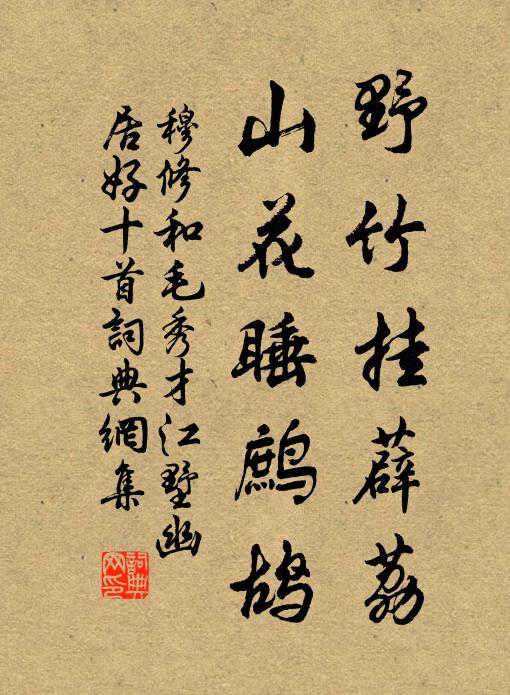 野竹挂薜荔
山花睡鷓鴣
穆修和毛秀才江墅幽
居好十首詞典網集
詞典
网印